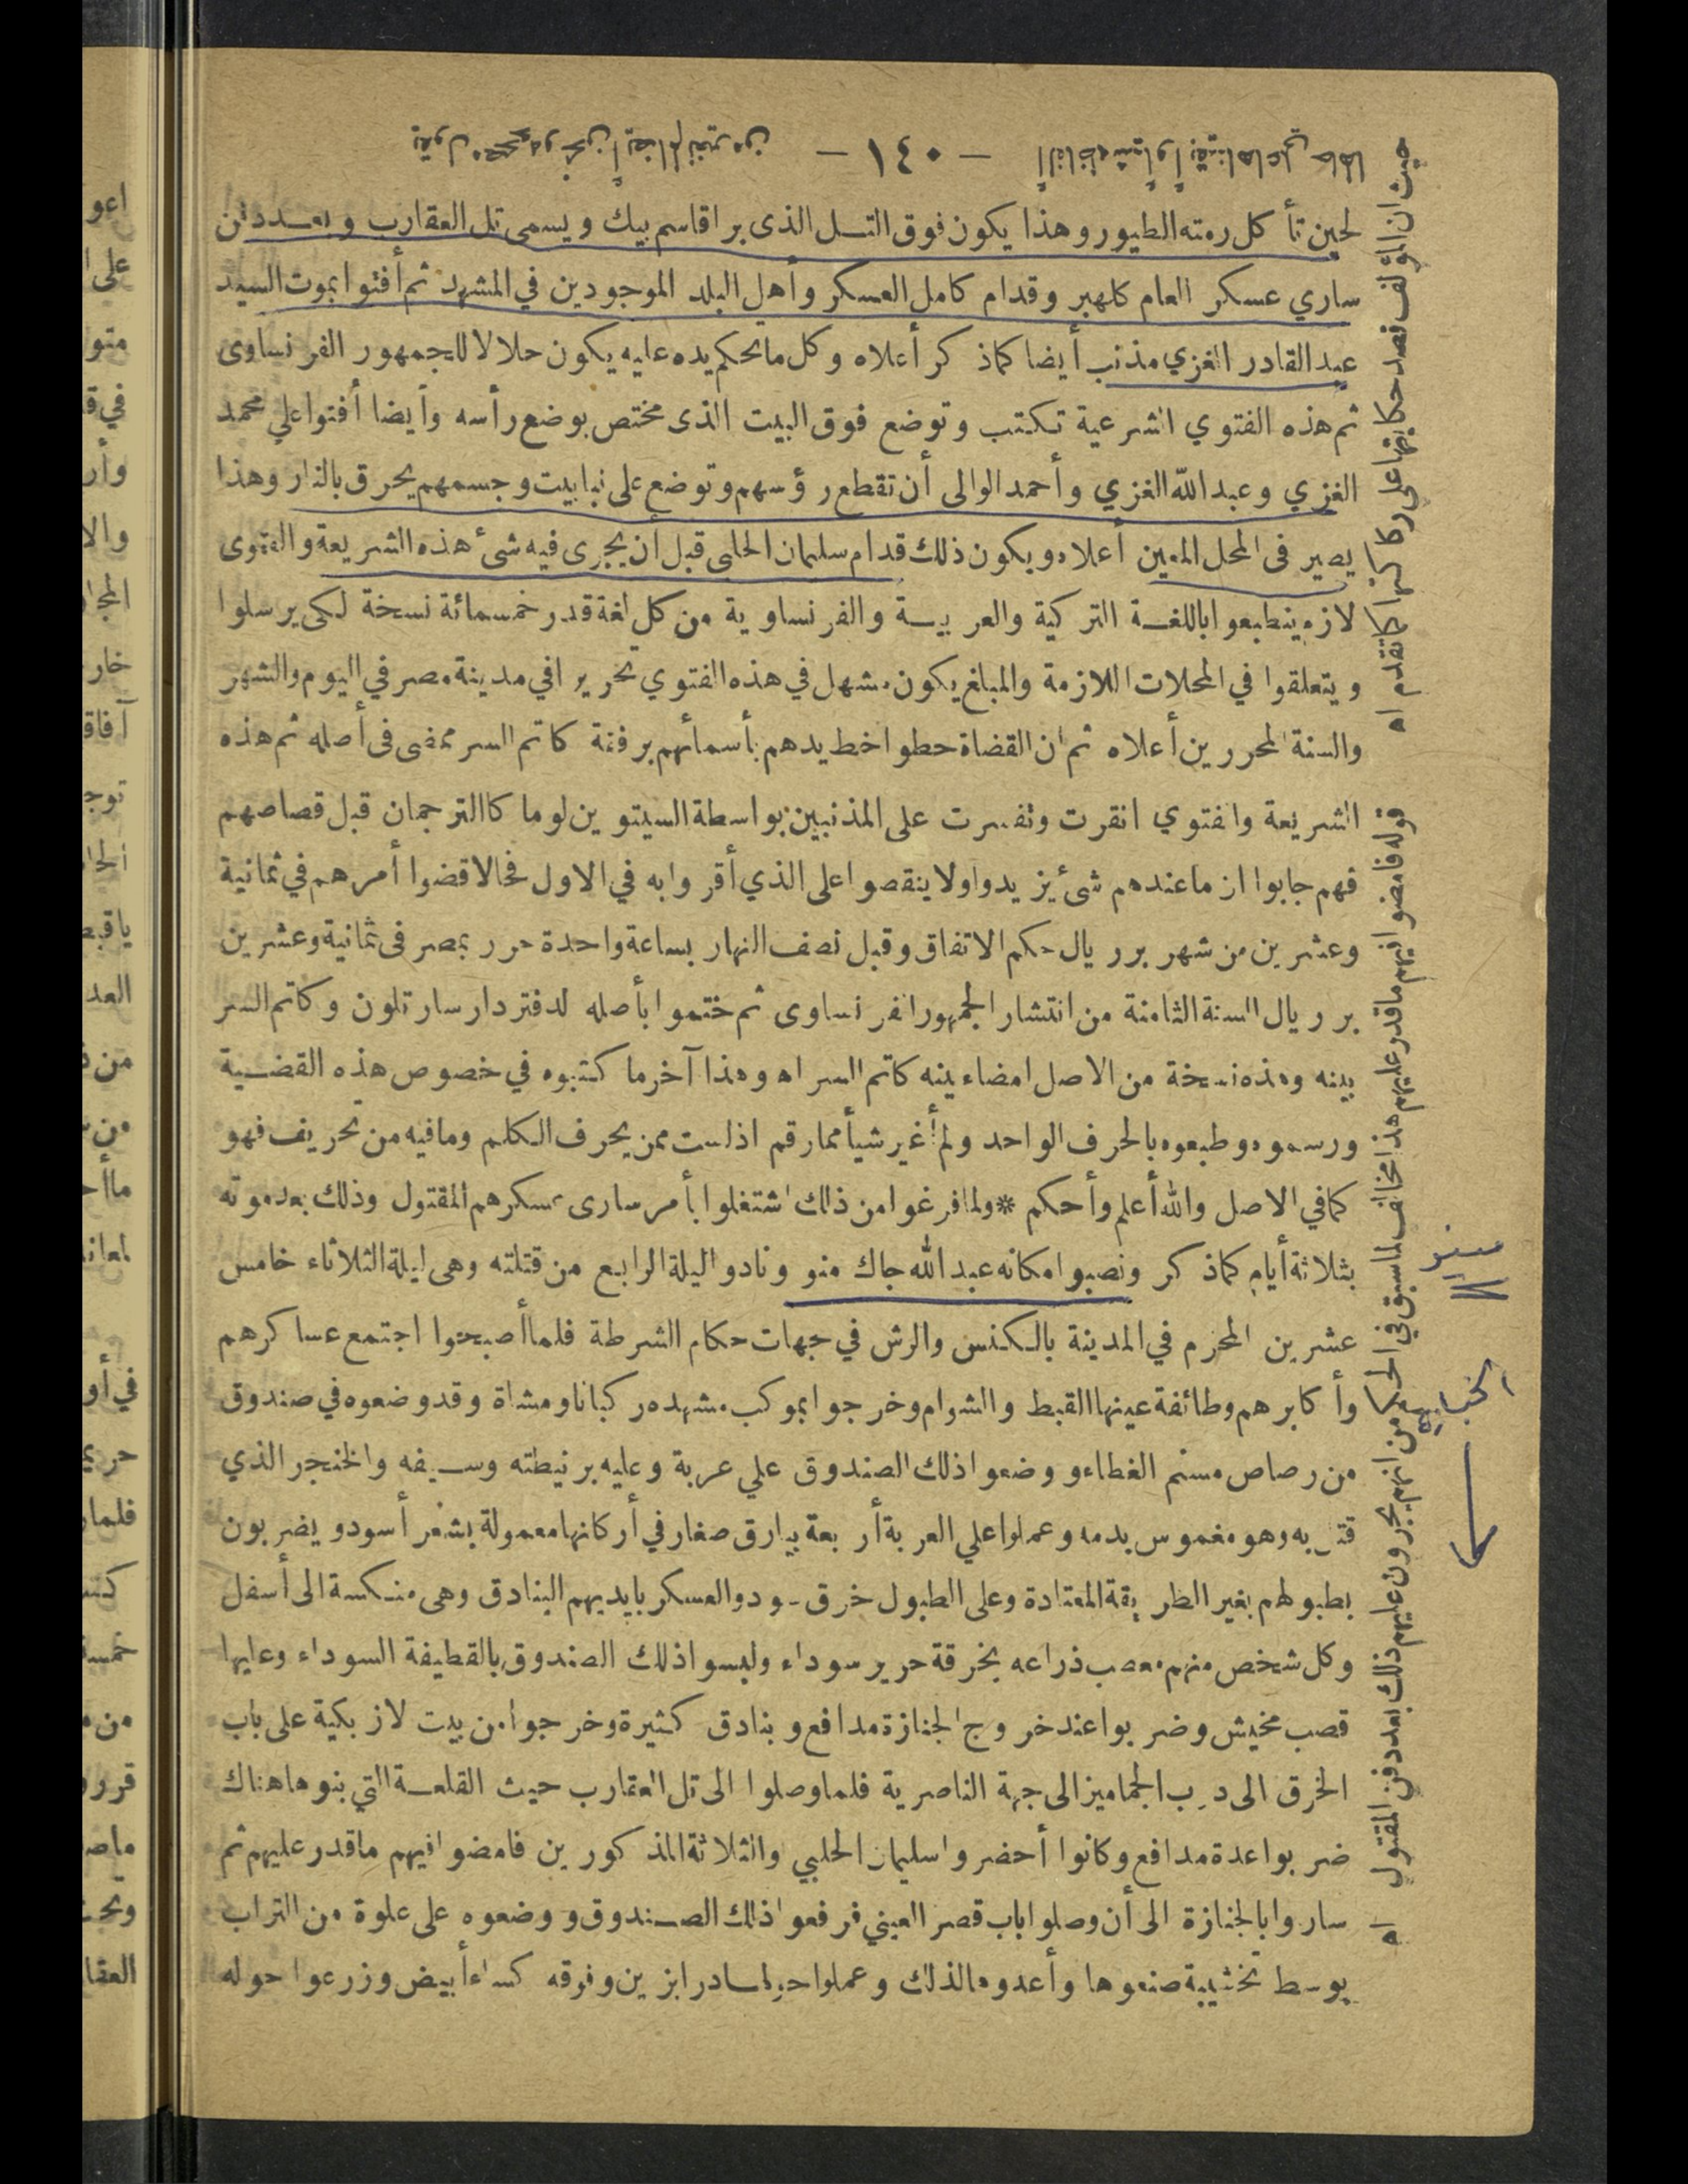 — ١٤٠ —
لحين تأكل رمته الطيور وهذا يكون فوق التل الذى برا قاسم بيك ويسمى تل العقارب وبعد دفن
ساري عسكر العام كلهبر وقدام كامل العسكر وأهل البلد الموجودين في المشهد ثم أفتوا بموت السيد
عبد القادر الغزي مذنب أيضا كما ذكر أعلاه وكل ما تحكم يده عليه يكون حلالا للجمهور الفرنساوى
ثم هذه الفتوي الشرعية تكتب وتوضع فوق البيت الذى مختص بوضع رأسه وأيضا أفتوا علي محمد
الغزي وعبد الله الغزي وأحمد الوالى أن تقطع رؤسهم وتوضع على نبابيت وجسمهم يحرق بالنار وهذا
يصير فى المحل المعين أعلاه ويكون ذلك قدام سليمان الحلبى قبل أن يجرى فيه شئ هذه الشريعة والفتوى
لازم ينطبعوا باللغة التركية والعربية والفرنساوية من كل لغة قدر خمسمائة نسخة لكى يرسلوا
ويتعلقوا في المحلات اللازمة والمبلغ يكون مشهل في هذه الفتوي تحريرا في مدينة مصر في اليوم والشهر
والسنة المحررين أعلاه ثم ان القضاة حطوا خط يدهم بأسمائهم برفقة كاتم السر ممضى فى أصله ثم هذه
الشريعة والفتوي انقرت وتفسرت على المذنبين بواسطة السيتوين لوماكا الترجمان قبل قصاصهم
فهم جابوا ان ما عندهم شئ يزيدوا ولا ينقصوا على الذي أقروا به في الاول فحالا قضوا أمرهم في ثمانية
وعشرين من شهر برريال حكم الاتفاق وقبل نصف النهار بساعة واحدة حرر بمصر فى ثمانية وعشرين
برريال السنة الثامنة من انتشار الجمهور الفرنساوى ثم ختموا بأصله لدفتردار سارتلون وكاتم السر
بينه وهذه نسخة من الاصل امضاء بينه كاتم السر اه وهذا آخر ما كتبوه في خصوص هذه القضية
ورسموه وطبعوه بالحرف الواحد ولم أغير شيأ مما رقم اذ لست ممن يحرف الكلم وما فيه من تحريف فهو
كما في الاصل والله أعلم وأحكم * ولما فرغوا من ذلك اشتغلوا بأمر سارى عسكرهم المقتول وذلك بعد موته
بثلاثة أيام كما ذكر ونصبوا مكانه عبد الله جاك منو ونادوا ليلة الرابع من قتلته وهى ليلة الثلاثاء خامس
عشرين المحرم في المدينة بالكنس والرش في جهات حكام الشرطة فلما أصبحوا اجتمع عساكرهم
وأكابرهم وطائفة عينها القبط والشوام وخرجوا بموكب مشهده ركبانا ومشاة وقد وضعوه في صندوق
من رصاص مسنم الغطاء ووضعوا ذلك الصندوق علي عربة وعليه برنيطته وسيفه والخنجر الذي
قتل به وهو مغموس بدمه وعملوا علي العربة أربعة بيارق صغار في أركانها معمولة بشعر أسود ويضربون
بطبولهم بغير الطريقة المعتادة وعلى الطبول خرق سود والعسكر بايديهم البنادق وهى منكسة الى أسفل
وكل شخص منهم معصب ذراعه بخرقة حرير سوداء ولبسوا ذلك الصندوق بالقطيفة السوداء وعليها
قصب مخيش وضربوا عند خروج الجنازة مدافع وبنادق كثيرة وخرجوا من بيت لازبكية على باب
الخرق الى درب الجماميز الى جهة الناصرية فلما وصلوا الى تل العقارب حيث القلعة التي بنوها هناك
ضربوا عدة مدافع وكانوا أحضروا سليمان الحلبي والثلاثة المذكورين فامضوا فيهم ما قدر عليهم ثم
ساروا بالجنازة الى أن وصلوا باب قصر العيني فرفعوا ذلك الصندوق ووضعوه على علوة من التراب
بوسط تخشيبة صنعوها وأعدوها لذلك وعملوا حولها سادرابزين وفوقه كساء أبيض وزرعوا حوله
حيث ان المؤلف قصد حكايتها على ركاكتها كما تقدم اه
قوله فامضوا فيهم ما قدر عليهم هذا مخالف لما سبق في الحكم من انهم يجرون عليهم ذلك بعد دفن المقتول اه